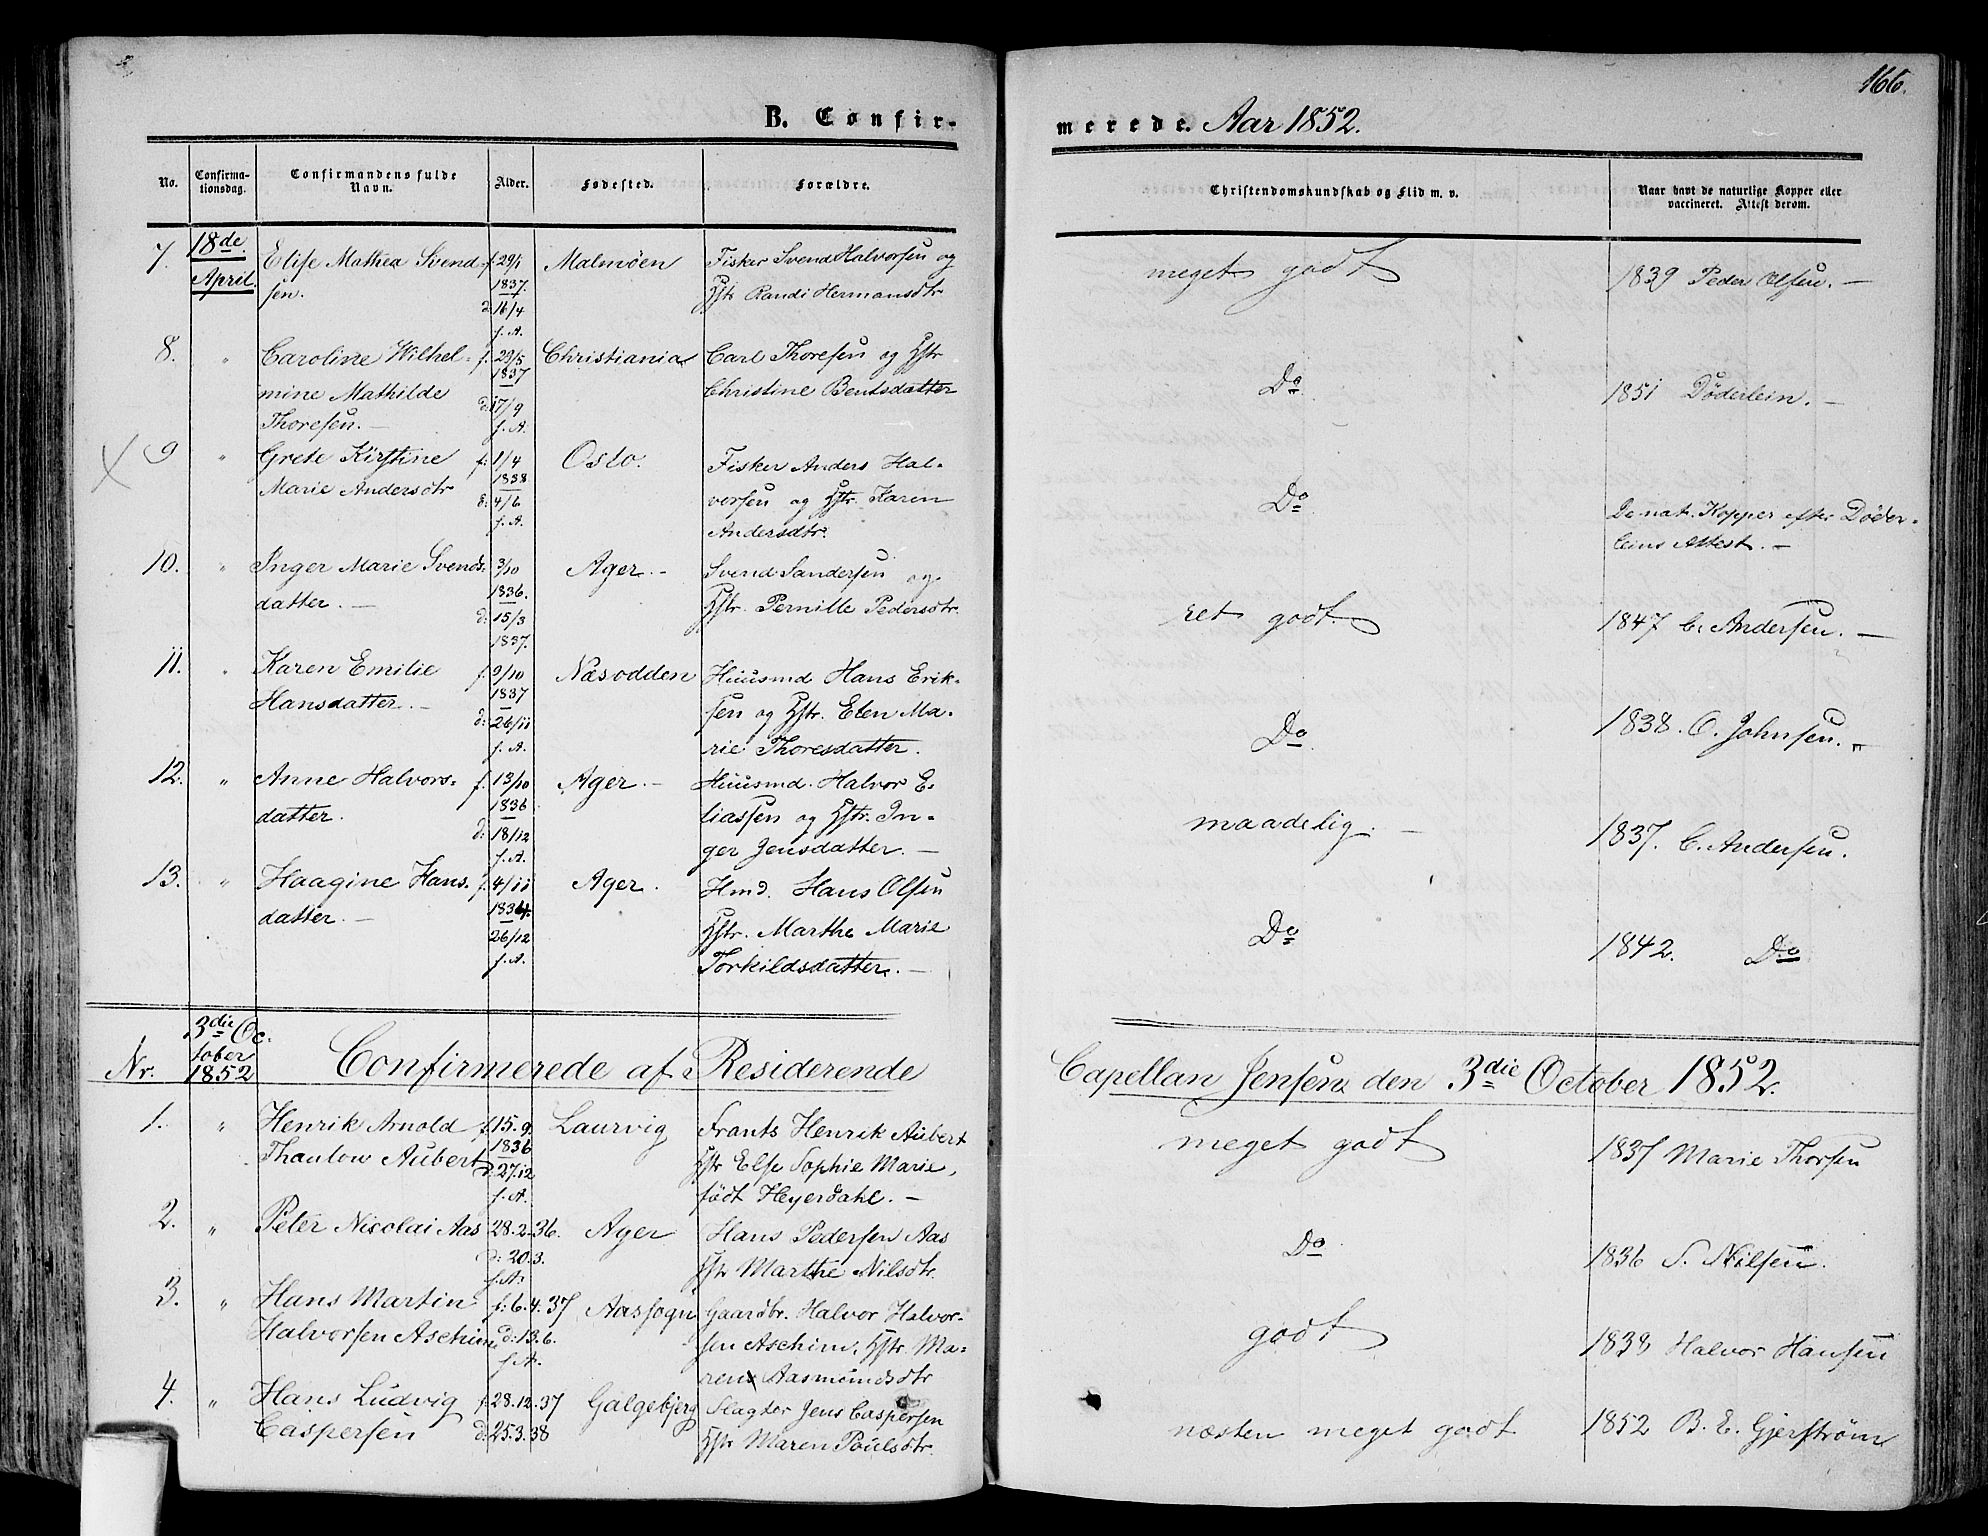 166.
B. Confir-
merede. Aar 1852.
No. Confirma-tionsdag. Confirmandens fulde Navn. Alder. Fødested. Forældre. Christendomskundskab og Flid m. v. Naar havt de naturlige Kopper eller vaccineret. Attest derom.
7. 18de April. Elise Mathea Svend- f. 29/1 Malmøen Fisker Svend Halvorsen og meget godt 1839 Peder Olsen. —
sen. 1837. Hstr Randi Hermansdtr
d: 16/4
f. A.
8. " Caroline Wilhel- f. 29/5 Christiania Carl Thoresen og Hstr Do 1851 Døderlein. —
mine Mathilde 1837 Christine Bentsdatter
Thoresen. — d. 17/9
f. A.
9 " Grete Kirstine f: 1/4 Oslo. Fisker Anders Hal- Do De nat. Kopper efter Døder-
Marie Andersdtr 1838 vorsen og Hstr. Karen leins Attest. —
d: 4/6 Andersdtr.
f. A.
10. " Inger Marie Svends- 3/10 Ager. — Svend Sandersen og ret godt. 1847 C. Andersen. —
datter. — 1836. Hstr. Pernille Pedersdtr.
d: 15/3
1837.
11. " Karen Emilie f. 9/10 Næsodden Huusmd Hans Erik- Do 1838. O. Johnsen. "
Hansdatter. — 1837 sen og Hstr. Elen Ma-
d: 26/11 rie Thoresdatter.
f. A.
12. " Anne Halvors- f. 13/10 Ager. — Huusmd. Halvor E- maadelig. — 1837. C. Andersen.
datter. 1836 liassen og Hstr. In-
d: 18/12 ger Jensdatter. —
f. A.
13. " Haagine Hans- f. 4/11 Ager. Hmd. Hans Olsen Do 1842. Do
datter. — 1834. Hstr. Marthe Marie
26/12 Torkildsdatter. —
f. A.
Nr. 3die Oc-tober 1852 Confirmerede af Residerende Capellan Jensen den 3die October 1852.
1. " Henrik Arnold f. 15.9. Laurvig Frants Henrik Aubert meget godt 1837 Marie Thorsen
Thaulow Aubert 1836 Hstr Else Sophie Marie,
d. 27.12 født Heyerdahl. —
f. A.
2. " Peter Nicolai Aas 28.2.36. Ager Hans Pedersen Aas Do 1836 S. Nilsen.
d: 20.3. Hstr Marthe Nilsdtr.
f. A.
3. " Hans Martin f: 6.4.37 Aassogn Gaardbr. Halvor Halvor- godt 1838 Halvor Hansen
Halvorsen Aschim d: 13.6. sen Aschim, Hstr. Ma-
f A. ren Aasmundsdtr
4. " Hans Ludvig f. 28.12.37 Galgebjerg Slagter Jens Caspersen næsten meget godt 1852 B. E. Gjerstrøm
Caspersen d. 25.3.38 Hstr Maren Poulsdtr.